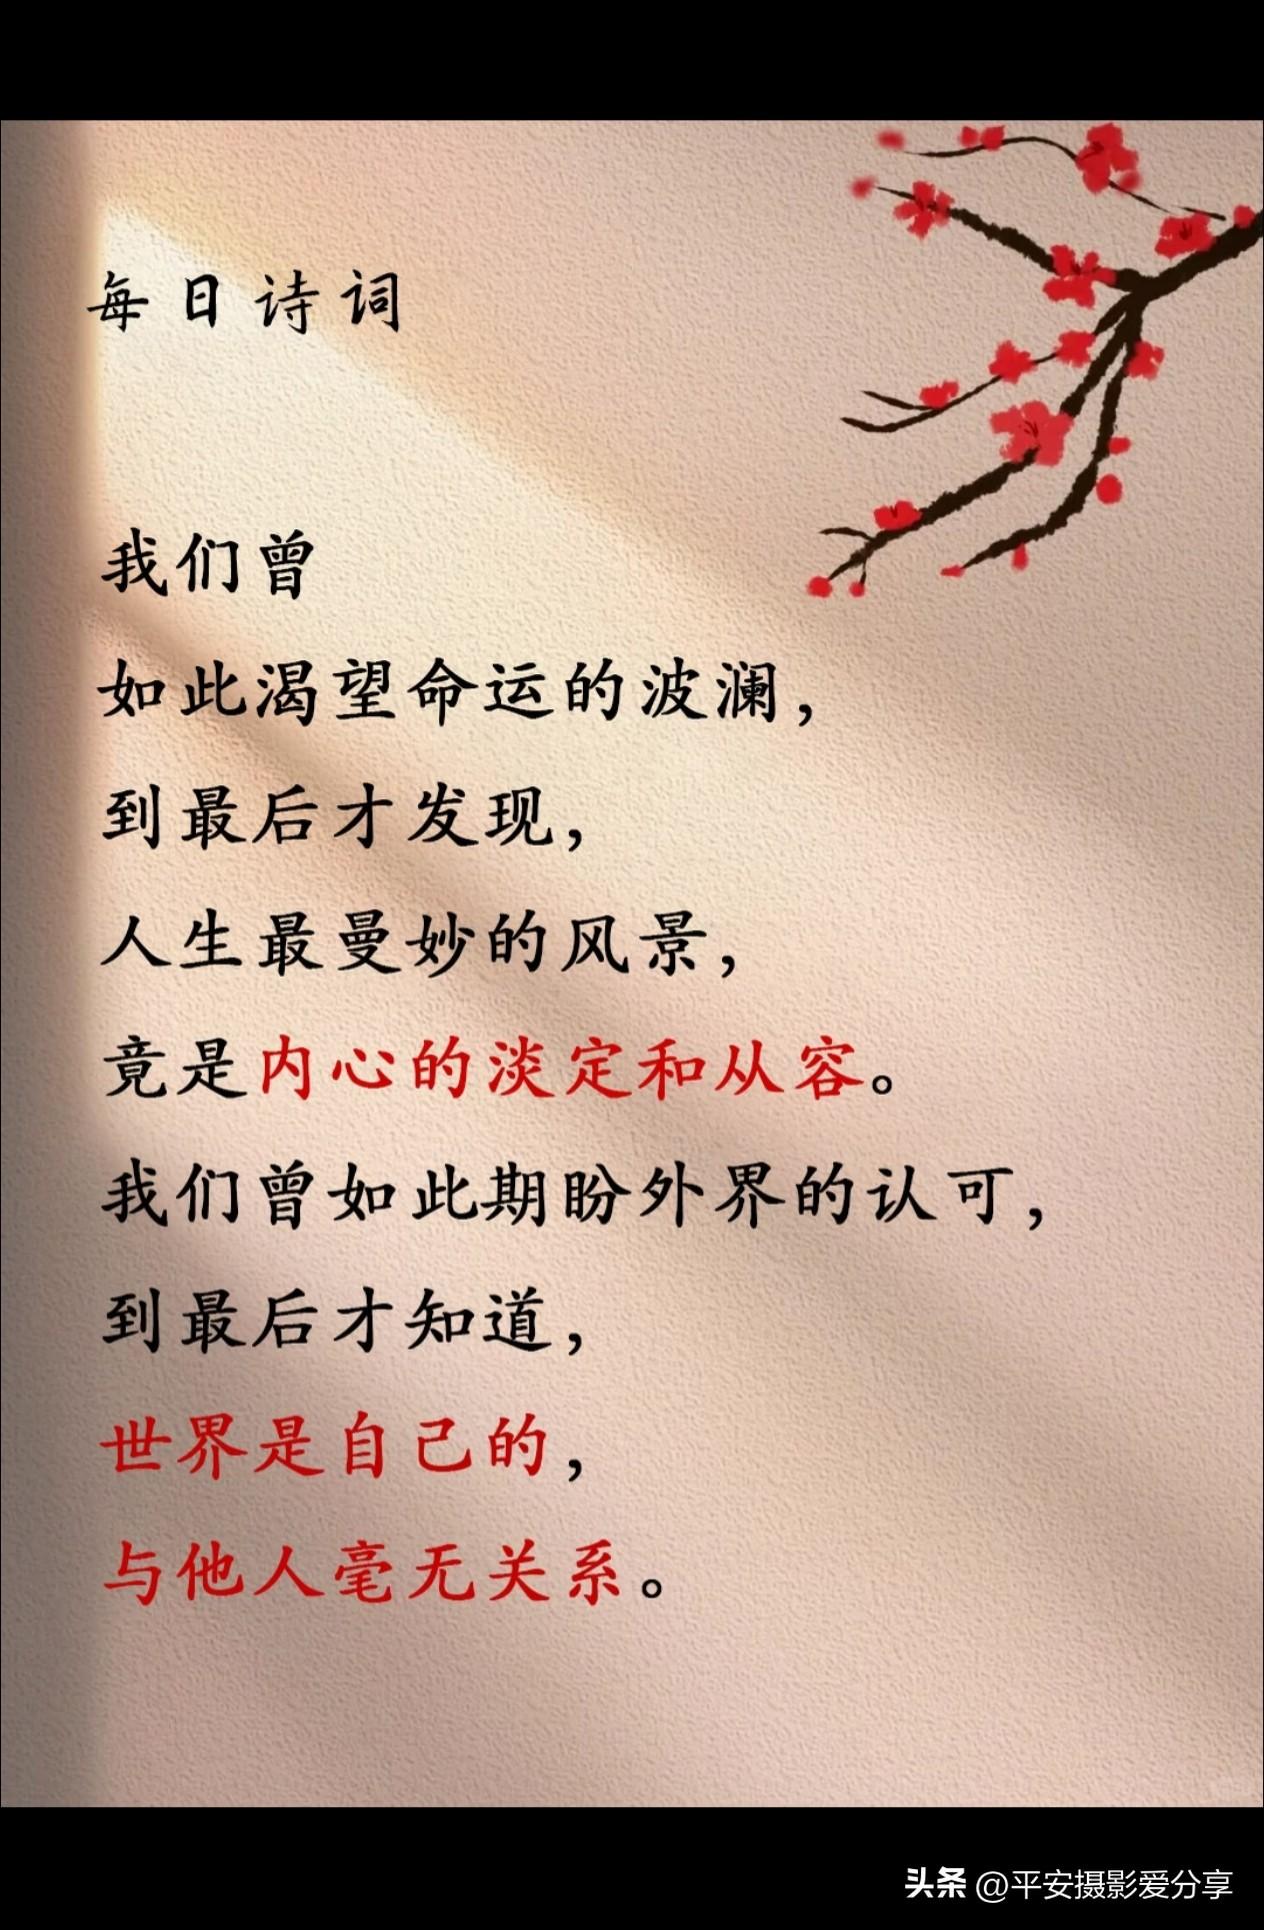 每日诗词
我们曾
如此渴望命运的波澜，
到最后才发现，
人生最曼妙的风景，
竟是内心的淡定和从容。
我们曾如此期盼外界的认可，
到最后才知道，
世界是自己的，
与他人毫无关系。
头条 @平安摄影爱分享